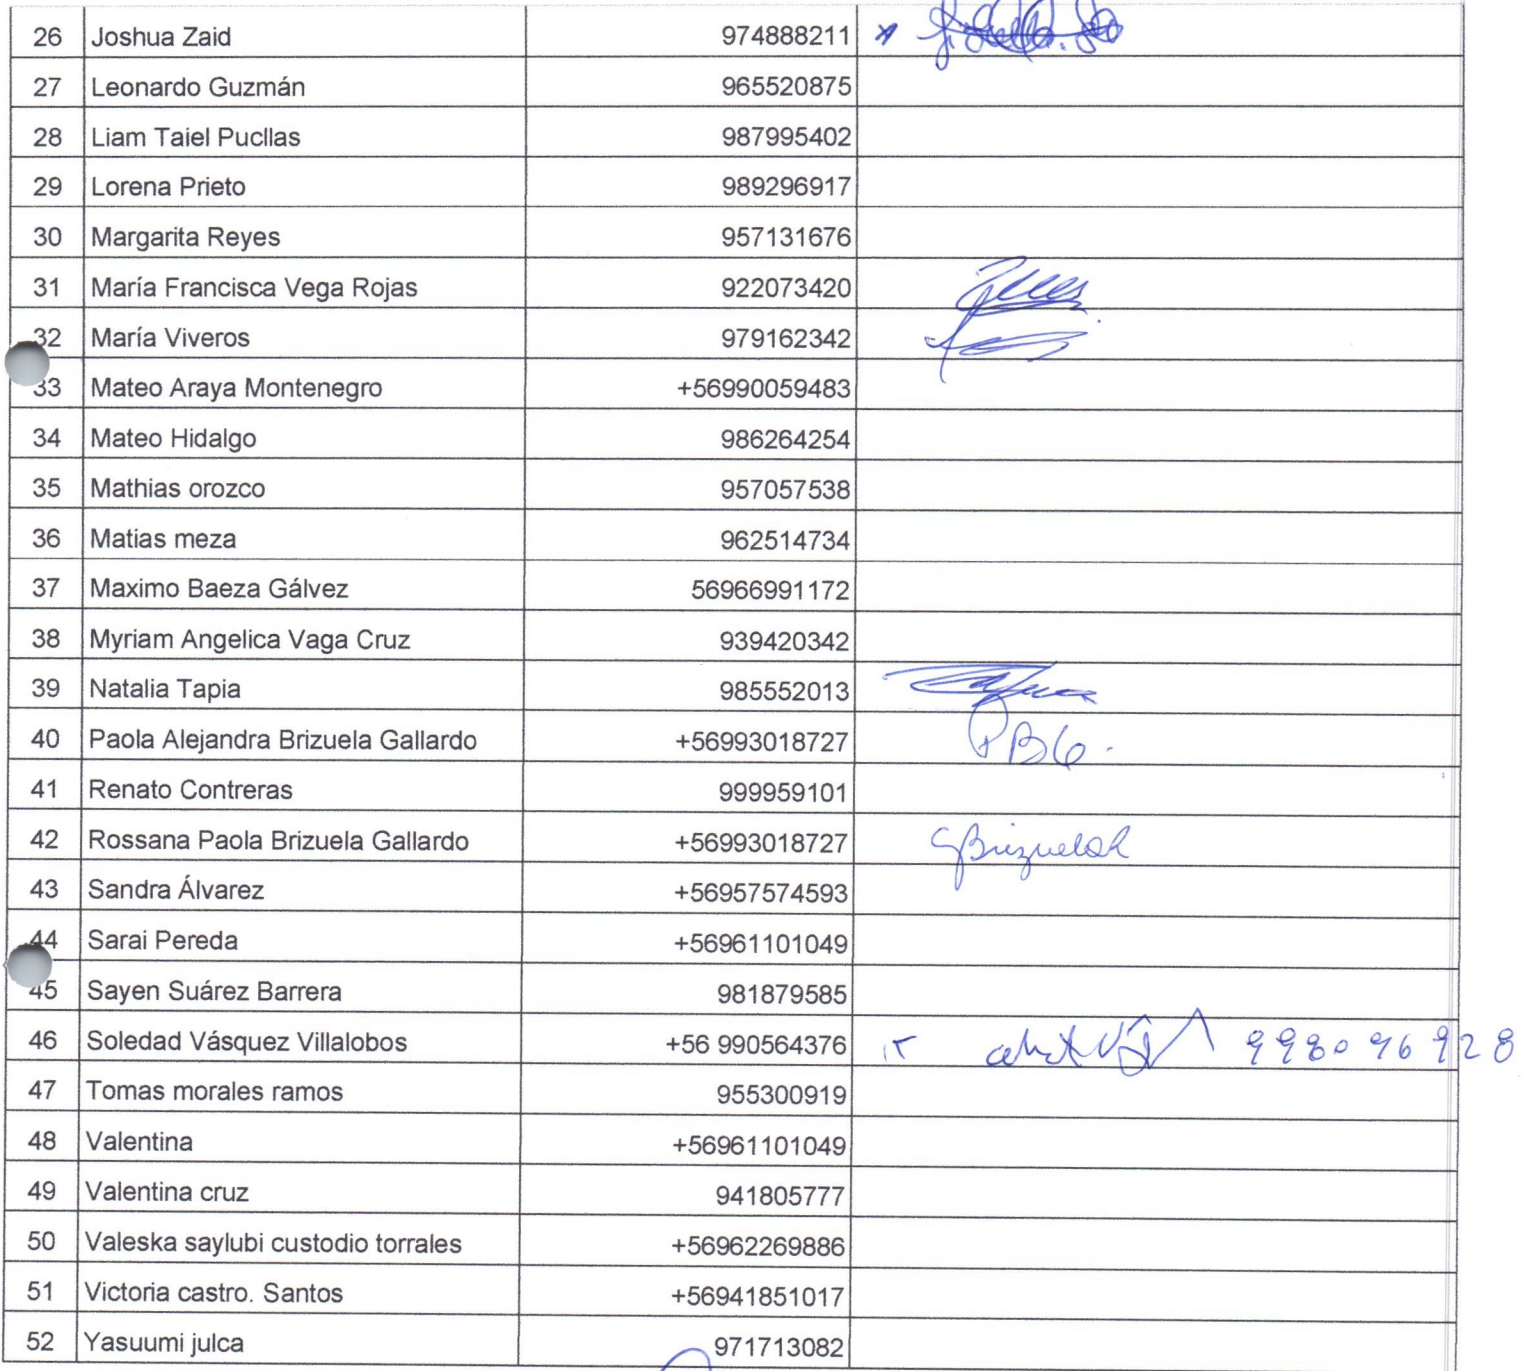 26 Joshua Zaid 974888211
27 Leonardo Guzmán 965520875
28 Liam Taiel Pucllas 987995402
29 Lorena Prieto 989296917
30 Margarita Reyes 957131676
31 María Francisca Vega Rojas 922073420
32 María Viveros 979162342
33 Mateo Araya Montenegro +56990059483
34 Mateo Hidalgo 986264254
35 Mathias orozco 957057538
36 Matias meza 962514734
37 Maximo Baeza Gálvez 56966991172
38 Myriam Angelica Vaga Cruz 939420342
39 Natalia Tapia 985552013
40 Paola Alejandra Brizuela Gallardo +56993018727 PBG.
41 Renato Contreras 999959101
42 Rossana Paola Brizuela Gallardo +56993018727
43 Sandra Álvarez +56957574593
44 Sarai Pereda +56961101049
45 Sayen Suárez Barrera 981879585
46 Soledad Vásquez Villalobos +56 990564376 998096928
47 Tomas morales ramos 955300919
48 Valentina +56961101049
49 Valentina cruz 941805777
50 Valeska saylubi custodio torrales +56962269886
51 Victoria castro. Santos +56941851017
52 Yasuumi julca 971713082